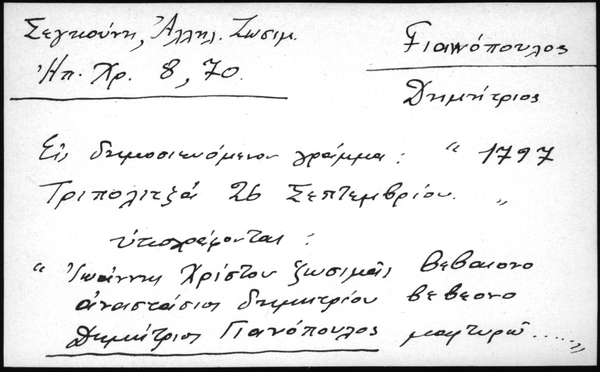 Σεγκούνη, Ἀλληλ. Ζωσιμ.
Ἠπ. Χρ. 8, 70.
Γιανόπουλος
Δημήτριος
Εἰς δημοσιευόμενον γράμμα: " 1797
Τριπολιτζά 26 Σεπτεμβρίου. "
ὑπογράφονται:
" Ἰωάννης Χρίστου ζωσιμᾶς βεβαιονο
ἀναστάσιος δημητρίου βεβεονο
Δημήτριος Γιανόπουλος μαρτυρῶ ..... "